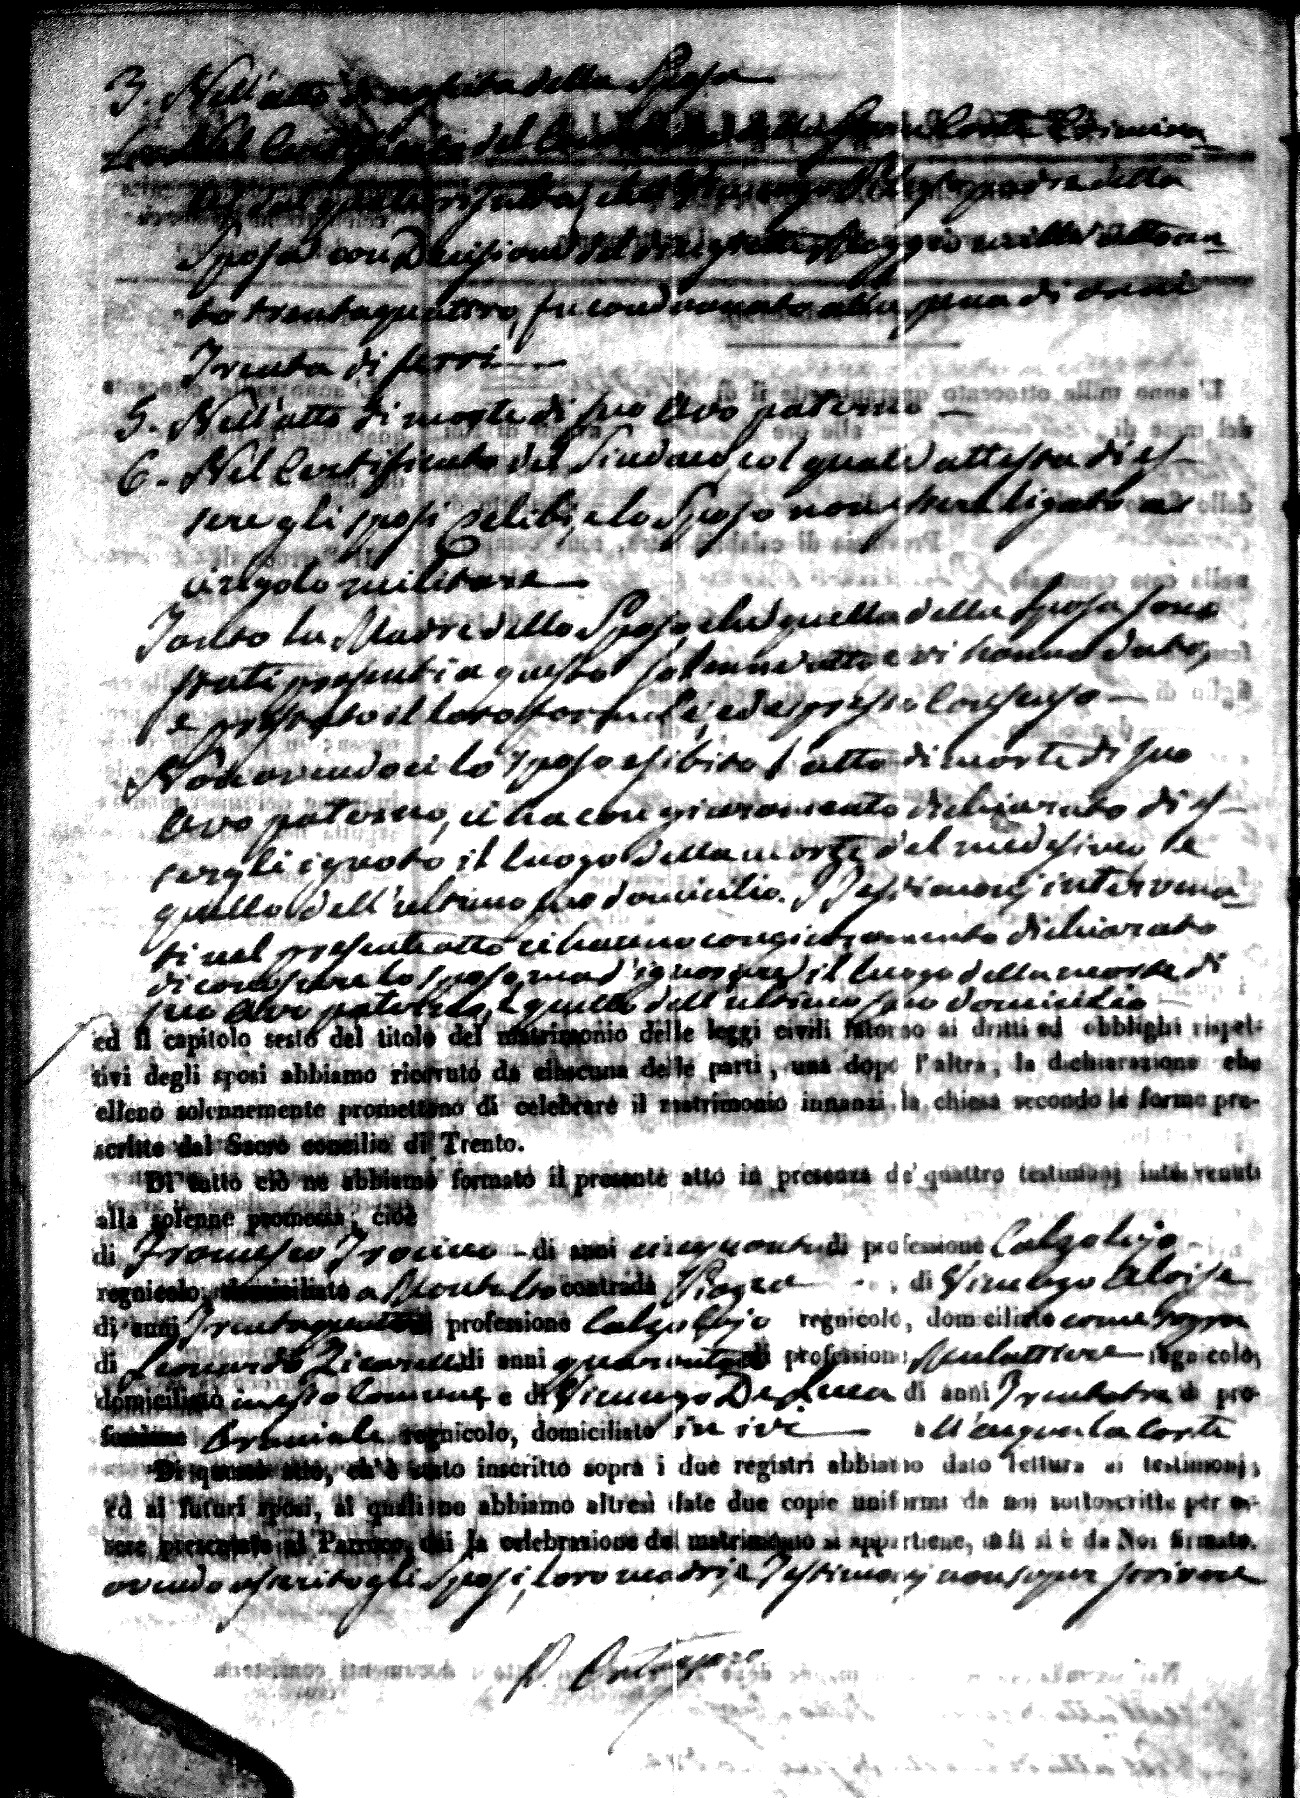 3. Nell'atto di nascita della Sposa
Nel Certificato del della Gran Corte Crimina
le dal quale risulta, che Vincenzo padre della
Sposa con Decisione del diciassette Maggio mille ottocen
to trentaquattro, fu condannato alla pena di anni
Trenta di ferri
5. Nell'atto di morte di suo Avo paterno
6. Nel Certificato del Sindaco, col quale attesta di es
sere gli sposi celibi, e lo Sposo non essere ligato a
vincolo militare
Tanto la Madre dello Sposo, che quella della Sposa sono
stati presenti a questo solenne atto e vi hanno dato,
e prestato il loro formale, ed espresso consenso
Non avendoci lo sposo esibito l'atto di morte di suo
Avo paterno, ci ha con giuramento dichiarato di es
sergli ignoto il luogo della morte del medesimo e
quello dell'ultimo suo domicilio. I Testimonj interven
ti nel presente atto ci hanno con giuramento dichiarato
di conoscere lo sposo, ma d'ignorare il luogo della morte di
suo Avo paterno, e quello dell'ultimo suo domicilio
ed il capitolo sesto del titolo del matrimonio delle leggi civili intorno ai dritti ed obblighi rispet-
tivi degli sposi abbiamo ricevuto da ciascuna delle parti, una dopo l'altra, la dichiarazione che
elleno solennemente promettono di celebrare il matrimonio innanzi la chiesa secondo le forme pre-
scritte dal Sacro concilio di Trento.
Di tutto ciò ne abbiamo formato il presente atto in presenza de' quattro testimonj intervenuti
alla solenne promessa, cioè
di Francesco di anni cinquanta di professione Calzolajo
regnicolo, domiciliato a Montalto contrada Piazza, di Vincenzo Aloise
di anni professione Calzolajo regnicolo, domiciliato come sopra
di Leonardo di anni quaranta di professione regnicolo,
domiciliato in esto Comune, e di Vincenzo De Luca di anni Trentatre di pro-
fessione Bracciale regnicolo, domiciliato in ivi
Di questo atto, ch'è stato inscritto sopra i due registri abbiamo dato lettura ai testimonj,
ed ai futuri sposi, ai quali ne abbiamo altresì date due copie uniformi da noi sottoscritte per es-
sere presentate al Parroco, cui la celebrazione del matrimonio si appartiene, indi si è da Noi firmato.
avendo asserito gli Sposi, loro madri, e Testimonj non saper scrivere